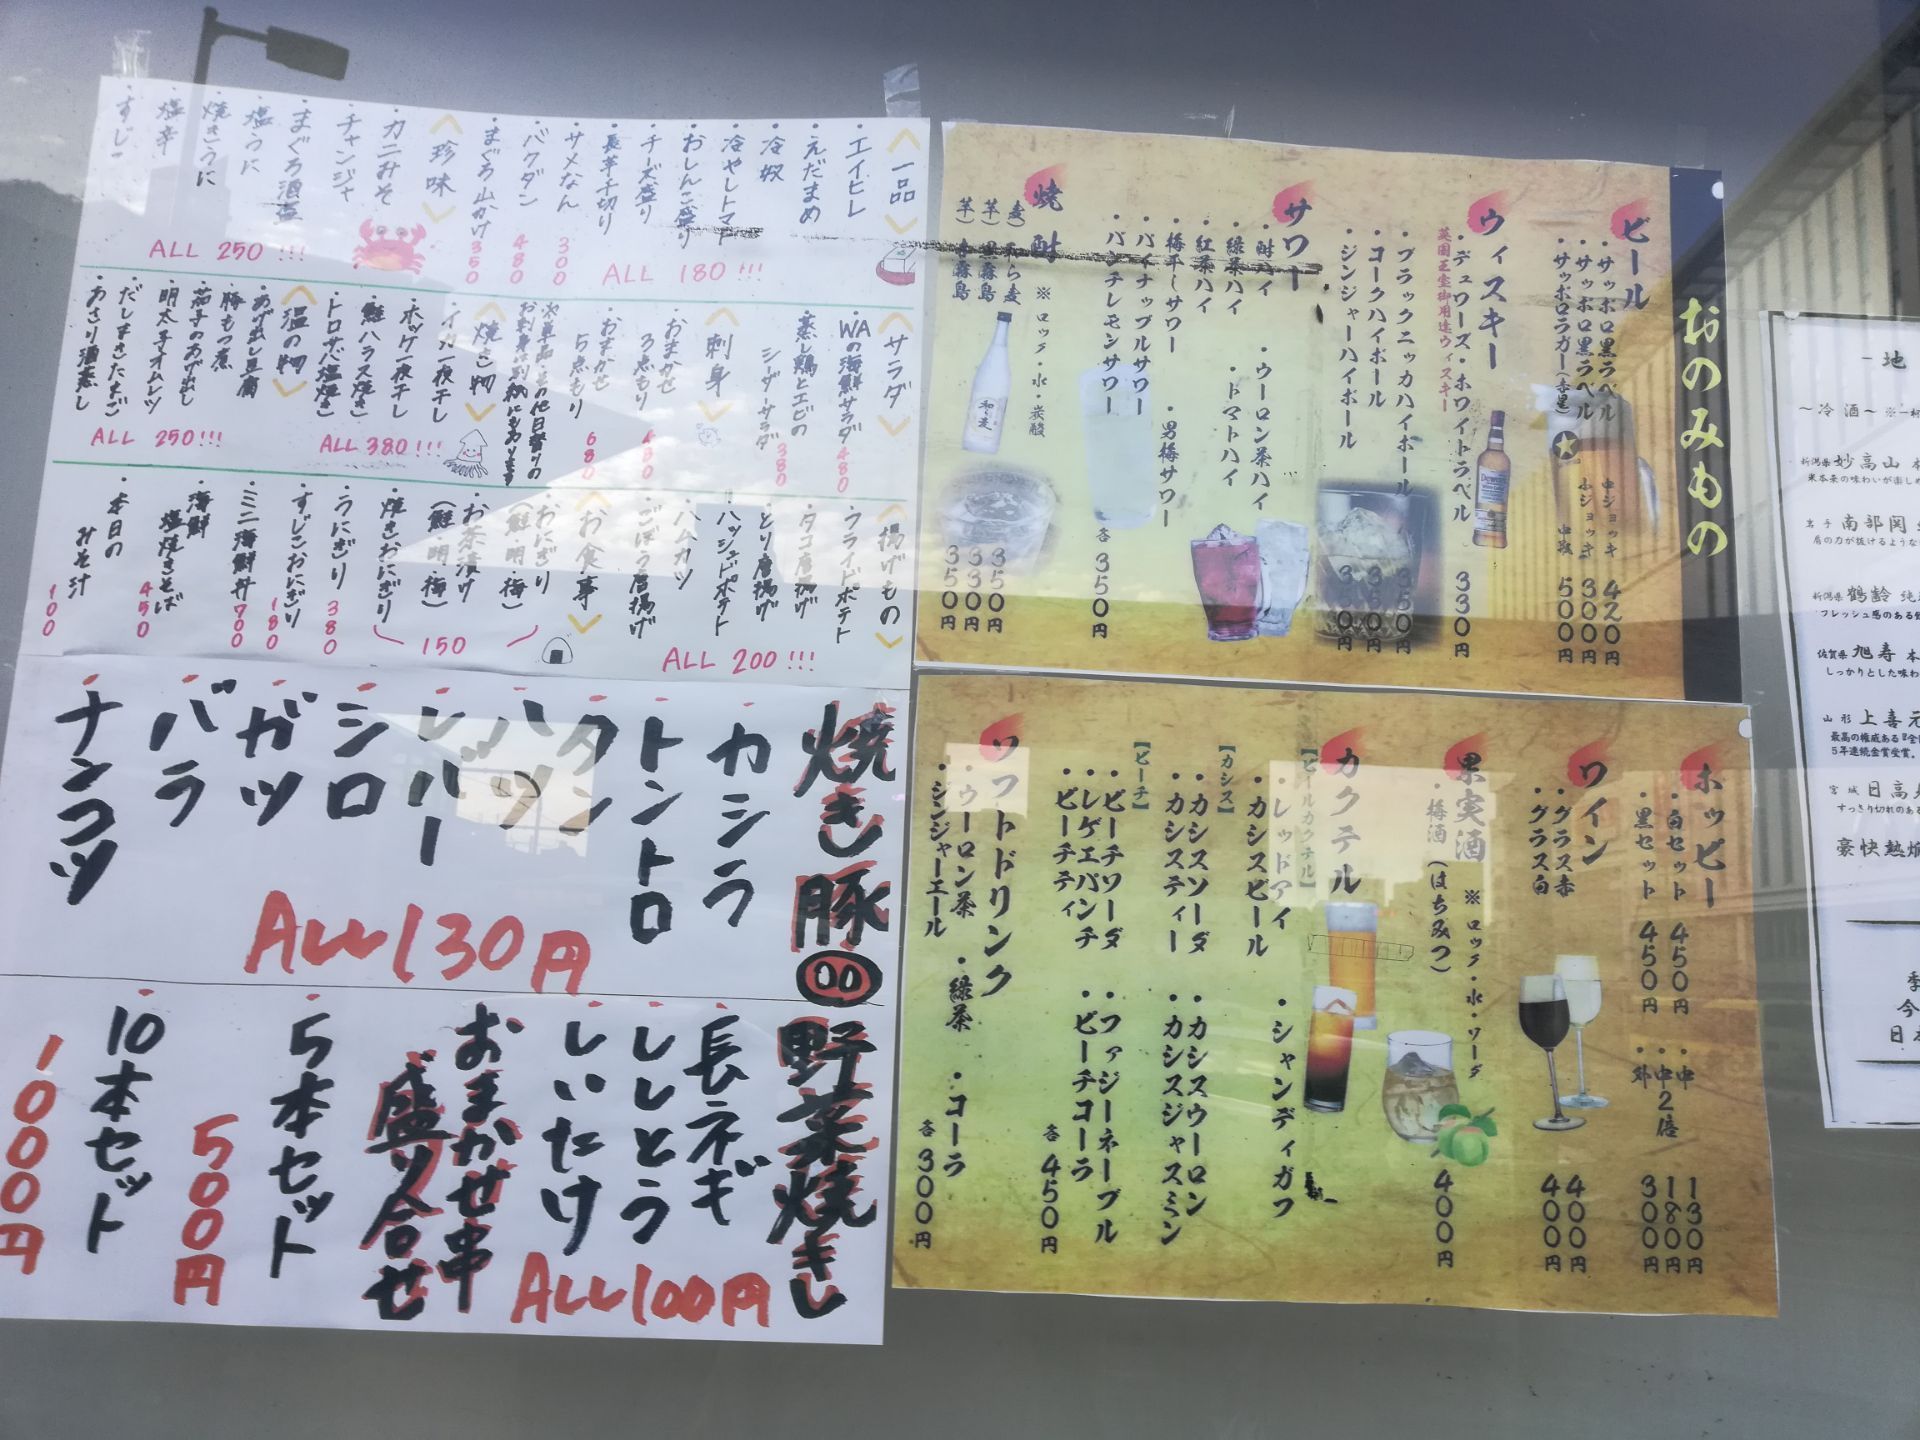 〈一品〉
・エイヒレ
・えだまめ
・冷奴
・冷やしトマト
・おしんこ盛り
・チーズ盛り
・長芋千切り
ALL 180!!!
・サメなん 300
・バクダン 480
・まぐろ山かけ 350
〈珍味〉
・カニみそ
・チャンジャ
・まぐろ酒盗
・塩うに
・焼きうに
・塩辛
・すじこ
ALL 250!!!
〈サラダ〉
・WAの海鮮サラダ 480
・蒸し鶏とエビの
シーザーサラダ 380
〈刺身〉
・おまかせ
3点もり 480
・おまかせ
5点もり 680
※単品・その他日替りの
お刺身は別紙にあります
〈焼き物〉
・イカ一夜干し
・ホッケ一夜干し
・鮭ハラス焼き
・トロサバ塩焼き
ALL 380!!!
〈温の物〉
・あげ出し豆腐
・豚もつ煮
・茄子のあげ出し
・明太チーズオムレツ
・だしまきたまご
・あさり酒蒸し
ALL 250!!!
〈揚げもの〉
・フライドポテト
・タコ唐揚げ
・とり唐揚げ
・ハッシュドポテト
・ハムカツ
・ごぼう唐揚げ
ALL 200!!!
〈お食事〉
・おにぎり
(鮭・明・梅)
・お茶漬け
(鮭・明・梅)
・焼きおにぎり
150
・うにぎり 380
・すじこおにぎり 180
・ミニ海鮮丼 700
・海鮮
塩焼きそば 450
・本日の
みそ汁 100
焼き豚
・カシラ
・トントロ
・タン
・ハツ
・レバー
・シロ
・ガツ
・バラ
・ナンコツ
ALL130円
野菜焼き
・長ネギ
・ししとう
・しいたけ
ALL100円
おまかせ串
盛り合せ
・5本セット
500円
・10本セット
1000円
おのみもの
ビール
・サッポロ黒ラベル 中ジョッキ 420円
・サッポロ黒ラベル 小ジョッキ 300円
・サッポロラガー(赤星) 中瓶 500円
ウィスキー
・デュワーズ・ホワイトラベル 330円
英国王室御用達ウィスキー
・ブラックニッカハイボール 350円
・コークハイボール 350円
・ジンジャーハイボール 350円
サワー
・酎ハイ ・ウーロン茶ハイ
・緑茶ハイ ・トマトハイ
・紅茶ハイ
・梅干しサワー ・男梅サワー
・パイナップルサワー
・パンチレモンサワー
各350円
焼酎 ※ロック・水・炭酸
麦) 和ら麦 350円
芋) 黒霧島 330円
芋) 赤霧島 350円
ホッピー
・白セット 450円 ・中 130円
・黒セット 450円 ・中2倍 180円
・外 300円
ワイン
・グラス赤 400円
・グラス白 400円
果実酒 ※ロック・水・ソーダ
・梅酒(はちみつ) 400円
カクテル
【ビールカクテル】
・レッドアイ ・シャンディガフ
・カシスビール
【カシス】
・カシスソーダ ・カシスウーロン
・カシスティー ・カシスジャスミン
【ピーチ】
・ピーチソーダ ・ファジーネーブル
・レゲエパンチ ・ピーチコーラ
・ピーチティ
各450円
ソフトドリンク
・ウーロン茶 ・緑茶 ・コーラ
・ジンジャーエール
各300円
地
～冷酒～
新潟県 妙高山
岩手 南部関
新潟県 鶴齢
佐賀県 旭寿
山形 上喜元
5年連続金賞受賞。
宮城 日高
豪快熱燗